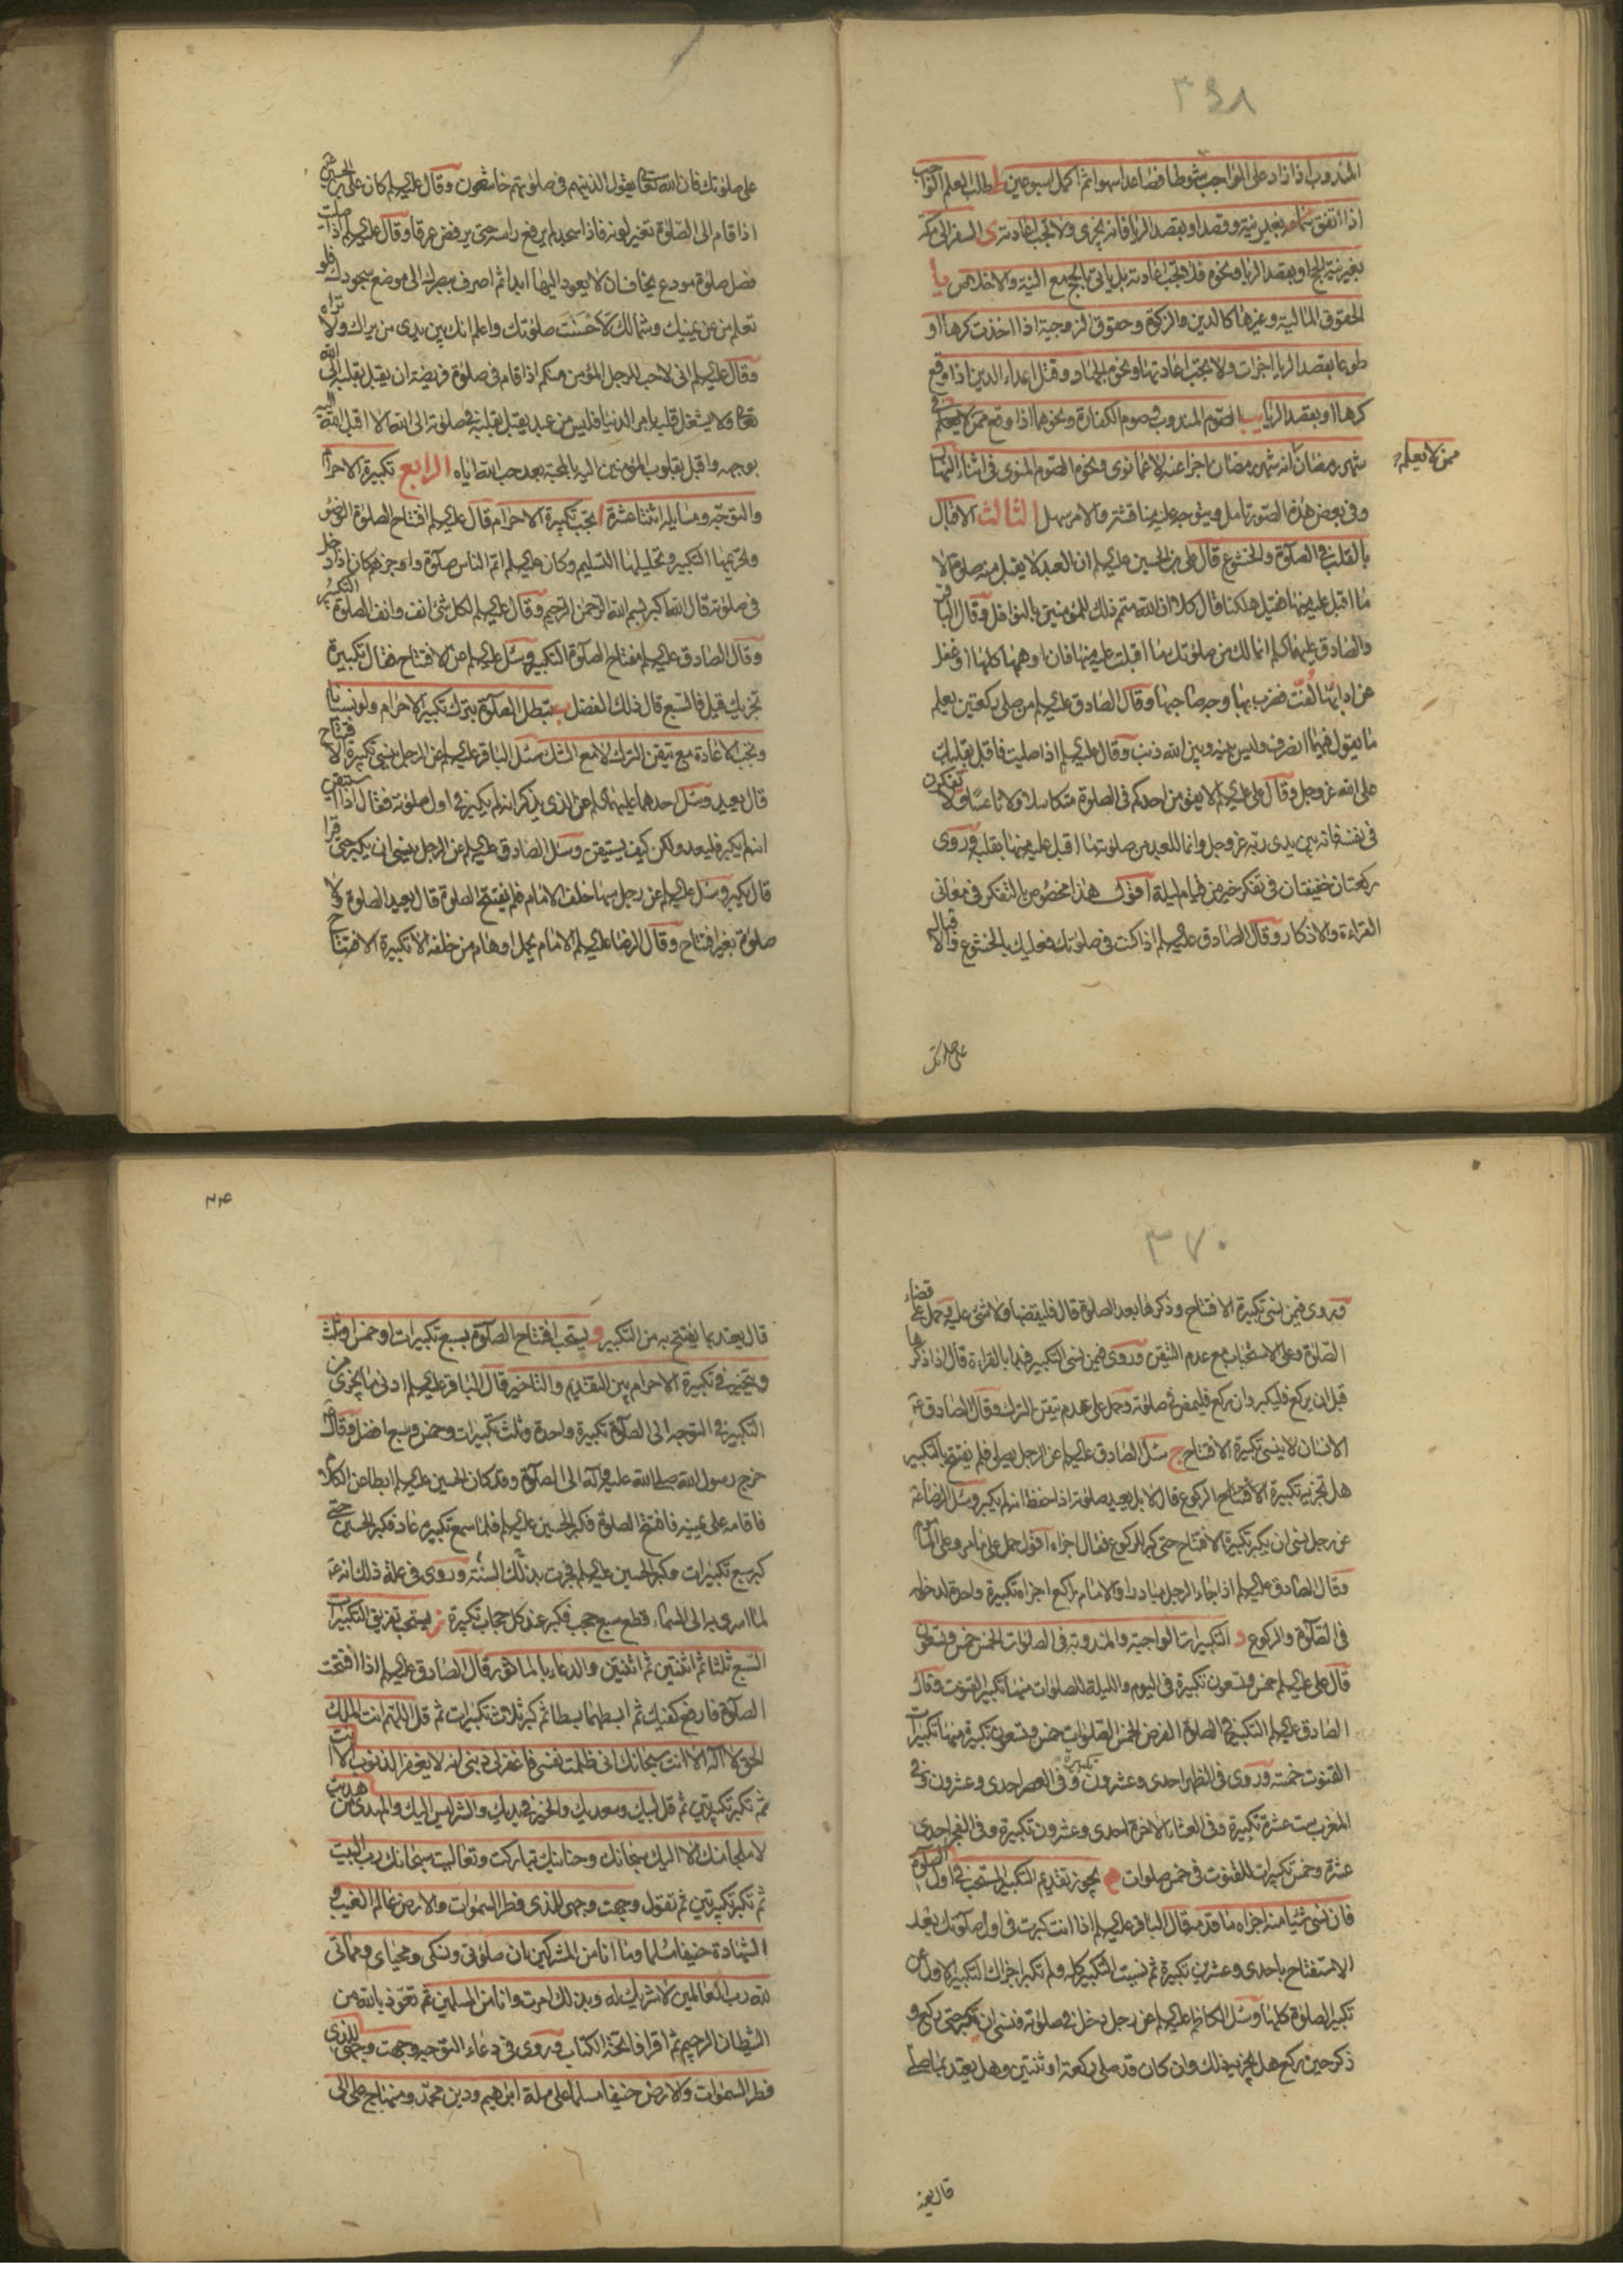 ٣٤٨
المندوب اذا زاد على الواجب شوطا فصاعدا سهوا ثم اكمل اسبوعين ط طلب العلم الواجب
اذا اتفق سماعه بغير نية وقصد او بقصد الريا فانه يجزى ولا تجب اعادته ى السفر الى مكة
بغير نية الحج او بقصد الريا ونحوه فلا تجب اعادته بل ياتى بالحج مع النية والاخلاص يا
الحقوق المالية وغيرها كالدين والزكوة وحقوق الزوجية اذا اخذت كرها او
طوعا بقصد الريا اجزات ولا تجب اعادتها ونحوه الجهاد وقتل اعداء الدين اذا وقع
كرها او بقصد الريا يب الصوم المندوب وصوم الكفارة ونحوهما اذا وقع ممن لا يعلم فى
شهر رمضان انه شهر رمضان اجزا عنه لا عما نوى ونحوه الصوم المنوى فى اثناء النهار
ممن لا يعلم
وفى بعض هذه الصور تامل ويتوجه عليه مناقشة والامر سهل الثالث الاقبال
بالقلب فى الصلوة والخشوع قال على بن الحسين عليه السلم ان العبد لا يقبل منه صلوة الا
ما اقبل عليه منها فقيل هلكنا قال كلا ان الله متمم ذلك للمؤمنين بالنوافل وقال الباقر
والصادق عليهما السلم انما لك من صلوتك ما اقبلت عليه منها فان اوهمها كلها او غفل
عن ادابها لفت فضرب بها وجه صاحبها وقال الصادق عليه السلم من صلى ركعتين يعلم
ما يقول فيهما انصرف وليس بينه وبين الله ذنب وقال عليه السلم اذا صليت فاقبل بقلبك
على الله عز وجل وقال على عليه السلم لا يقومن احدكم فى الصلوة متكاسلا ولا ناعسا ولا يفكرن
فى نفسه فانه بين يدى ربه عز وجل وانما للعبد من صلوته ما اقبل عليه منها بقلبه وروى
ركعتان خفيفتان فى تفكر خير من قيام ليلة اقول هذا مخصوص بالتفكر فى معانى
القراءة والاذكار وقال الصادق عليه السلم اذا كنت فى صلوتك فعليك بالخشوع والاقبال
على صلوتك
على صلوتك فان الله تعالى يقول الذين هم فى صلوتهم خاشعون وقال عليه السلم كان على بن الحسين
اذا قام الى الصلوة تغير لونه فاذا سجد لم يرفع راسه حتى يرفض عرقا وقال عليه السلم اذا صليت
فصل صلوة مودع يخاف ان لا يعود اليها ابدا ثم اصرف بصرك الى موضع سجودك فلو
تعلم من عن يمينك وشمالك لاحسنت صلوتك واعلم انك بين يدى من يراك ولا تراه
وقال عليه السلم انى لاحب للرجل المؤمن منكم اذا قام فى صلوة فريضة ان يقبل بقلبه الى الله
تعالى ولا يشغل قلبه بامر الدنيا فليس من عبد يقبل بقلبه فى صلوته الى الله الا اقبل الله اليه
بوجهه واقبل بقلوب المؤمنين اليه بالمحبة بعد حب الله اياه الرابع تكبيرة الاحرام
والتوجه ومسايله اثنتا عشرة ا تجب تكبيرة الاحرام قال عليه السلم افتتاح الصلوة الوضوء
وتحريمها التكبير وتحليلها التسليم وكان عليه السلم اتم الناس صلوة واوجزهم كان اذا دخل
فى صلوته قال الله اكبر بسم الله الرحمن الرحيم وقال عليه السلم لكل شئ انف وانف الصلوة التكبير
وقال الصادق عليه السلم مفتاح الصلوة التكبير وسئل عليه السلم عن الافتتاح فقال تكبيرة
تجزيك قيل فالسبع قال ذلك الفضل ب تبطل الصلوة بترك تكبير الاحرام ولو نسيانا
وتجب الاعادة مع تيقن الترك لا مع الشك سئل الباقر عليه السلم عن الرجل ينسى تكبيرة الافتتاح
قال يعيد وسئل احدهما عليهما السلم عن الذى يذكر انه لم يكبر فى اول صلوته فقال اذا استيقن
انه لم يكبر فليعد ولكن كيف يستيقن وسئل الصادق عليه السلم عن الرجل ينسى ان يكبر حتى قرا
قال يكبر وسئل عليه السلم عن رجل سها خلف الامام فلم يفتتح الصلوة قال يعيد الصلوة ولا
صلوة بغير افتتاح وقال الرضا عليه السلم الامام يحمل اوهام من خلفه الا تكبيرة الافتتاح
٣٧٠
وروى فيمن نسى تكبيرة الافتتاح وذكرها بعد الصلوة قال فليقضها ولا شئ عليه وحمل على قضاء
الصلوة وعلى الاستحباب مع عدم التيقن وروى فيمن نسى التكبير فيها بالقراءة قال اذا ذكرها
قبل ان يركع فليكبر وان ركع فليمض فى صلوته وحمل على عدم تيقن الترك وقال الصادق ع
الانسان لا ينسى تكبيرة الافتتاح ج سئل الصادق عليه السلم عن الرجل يصلى فلم يفتتح بالتكبير
هل تجزيه تكبيرة الافتتاح الركوع قال لا بل يعيد صلوته اذا حفظ انه لم يكبر وسئل الرضا ع
عن رجل نسى ان يكبر تكبيرة الافتتاح حتى كبر للركوع فقال اجزاه اقول حمل على ما مر وعلى الماموم
وقال الصادق عليه السلم اذا جاء الرجل مبادرا والامام راكع اجزاه تكبيرة واحدة لدخوله
فى الصلوة والركوع د التكبيرات الواجبة والمندوبة فى الصلوات الخمس خمس وتسعون
قال على عليه السلم خمس وتسعون تكبيرة فى اليوم والليلة للصلوات منها تكبير القنوت وقال
الصادق عليه السلم التكبير فى الصلوة الفرض الخمس الصلوات خمس وتسعون تكبيرة منها تكبيرات
القنوت خمسة وروى فى الظهر احدى وعشرون تكبيرة وفى العصر احدى وعشرون وفى
المغرب ست عشرة تكبيرة وفى العشاء الاخرة احدى وعشرون تكبيرة وفى الفجر احدى
عشرة وخمس تكبيرات للقنوت فى خمس صلوات ه يجوز تقديم التكبير المستحب فى اول الصلوة
فان نسى شيئا منه اجزاه ما قدمه قال الباقر عليه السلم اذا انت كبرت فى اول صلوتك بعد
الاستفتاح باحدى وعشرين تكبيرة ثم نسيت التكبير كله ولم تكبر اجزاك التكبير الاول عن
تكبير الصلوة كلها وسئل الكاظم عليه السلم عن رجل دخل فى صلوته فنسى ان يكبر حتى ركع و
ذكر حين ركع هل يجزيه ذلك وان كان قد صلى ركعة او ثنتين وهل يعتد بما صلى
قال يعتد
قال يعتد بما يفتتح به من التكبير و يستحب افتتاح الصلوة بسبع تكبيرات او خمس او ثلث
ويتخير فى تكبيرة الاحرام بين التقديم والتاخير قال الباقر عليه السلم ادنى ما يجزى من
التكبير فى التوجه الى الصلوة تكبيرة واحدة وثلث تكبيرات وخمس وسبع افضل وقال ع
خرج رسول الله صلى الله عليه وآله الى الصلوة وقد كان الحسين عليه السلم ابطا عن الكلام
فاقامه على يمينه فافتتح الصلوة فكبر الحسين عليه السلم فلما سمع تكبيره عاد فكبر الحسين حتى
كبر سبع تكبيرات وكبر الحسين عليه السلم فجرت بذلك السنة وروى فى علة ذلك انه ع
لما اسرى به الى السماء قطع سبع حجب فكبر عند كل حجاب تكبيرة ز يستحب تفريق التكبيرات
السبع ثلثا ثم اثنتين ثم اثنتين والدعاء بالماثور قال الصادق عليه السلم اذا افتتحت
الصلوة فارفع كفيك ثم ابسطهما بسطا ثم كبر ثلاث تكبيرات ثم قل اللهم انت الملك
الحق لا اله الا انت سبحانك انى ظلمت نفسى فاغفر لى ذنبى انه لا يغفر الذنوب الا انت
ثم تكبر تكبيرتين ثم قل لبيك وسعديك والخير فى يديك والشر ليس اليك والمهدى من هديت
لا ملجا منك الا اليك سبحانك وحنانيك تباركت وتعاليت سبحانك رب البيت
ثم تكبر تكبيرتين ثم تقول وجهت وجهى للذى فطر السموات والارض عالم الغيب و
الشهادة حنيفا مسلما وما انا من المشركين ان صلوتى ونسكى ومحياى ومماتى
لله رب العالمين لا شريك له وبذلك امرت وانا من المسلمين ثم تعوذ بالله من
الشيطان الرجيم ثم اقرا فاتحة الكتاب وروى فى دعاء التوجه وجهت وجهى للذى
فطر السموات والارض حنيفا مسلما على ملة ابرهيم ودين محمد ومنهاج على الى